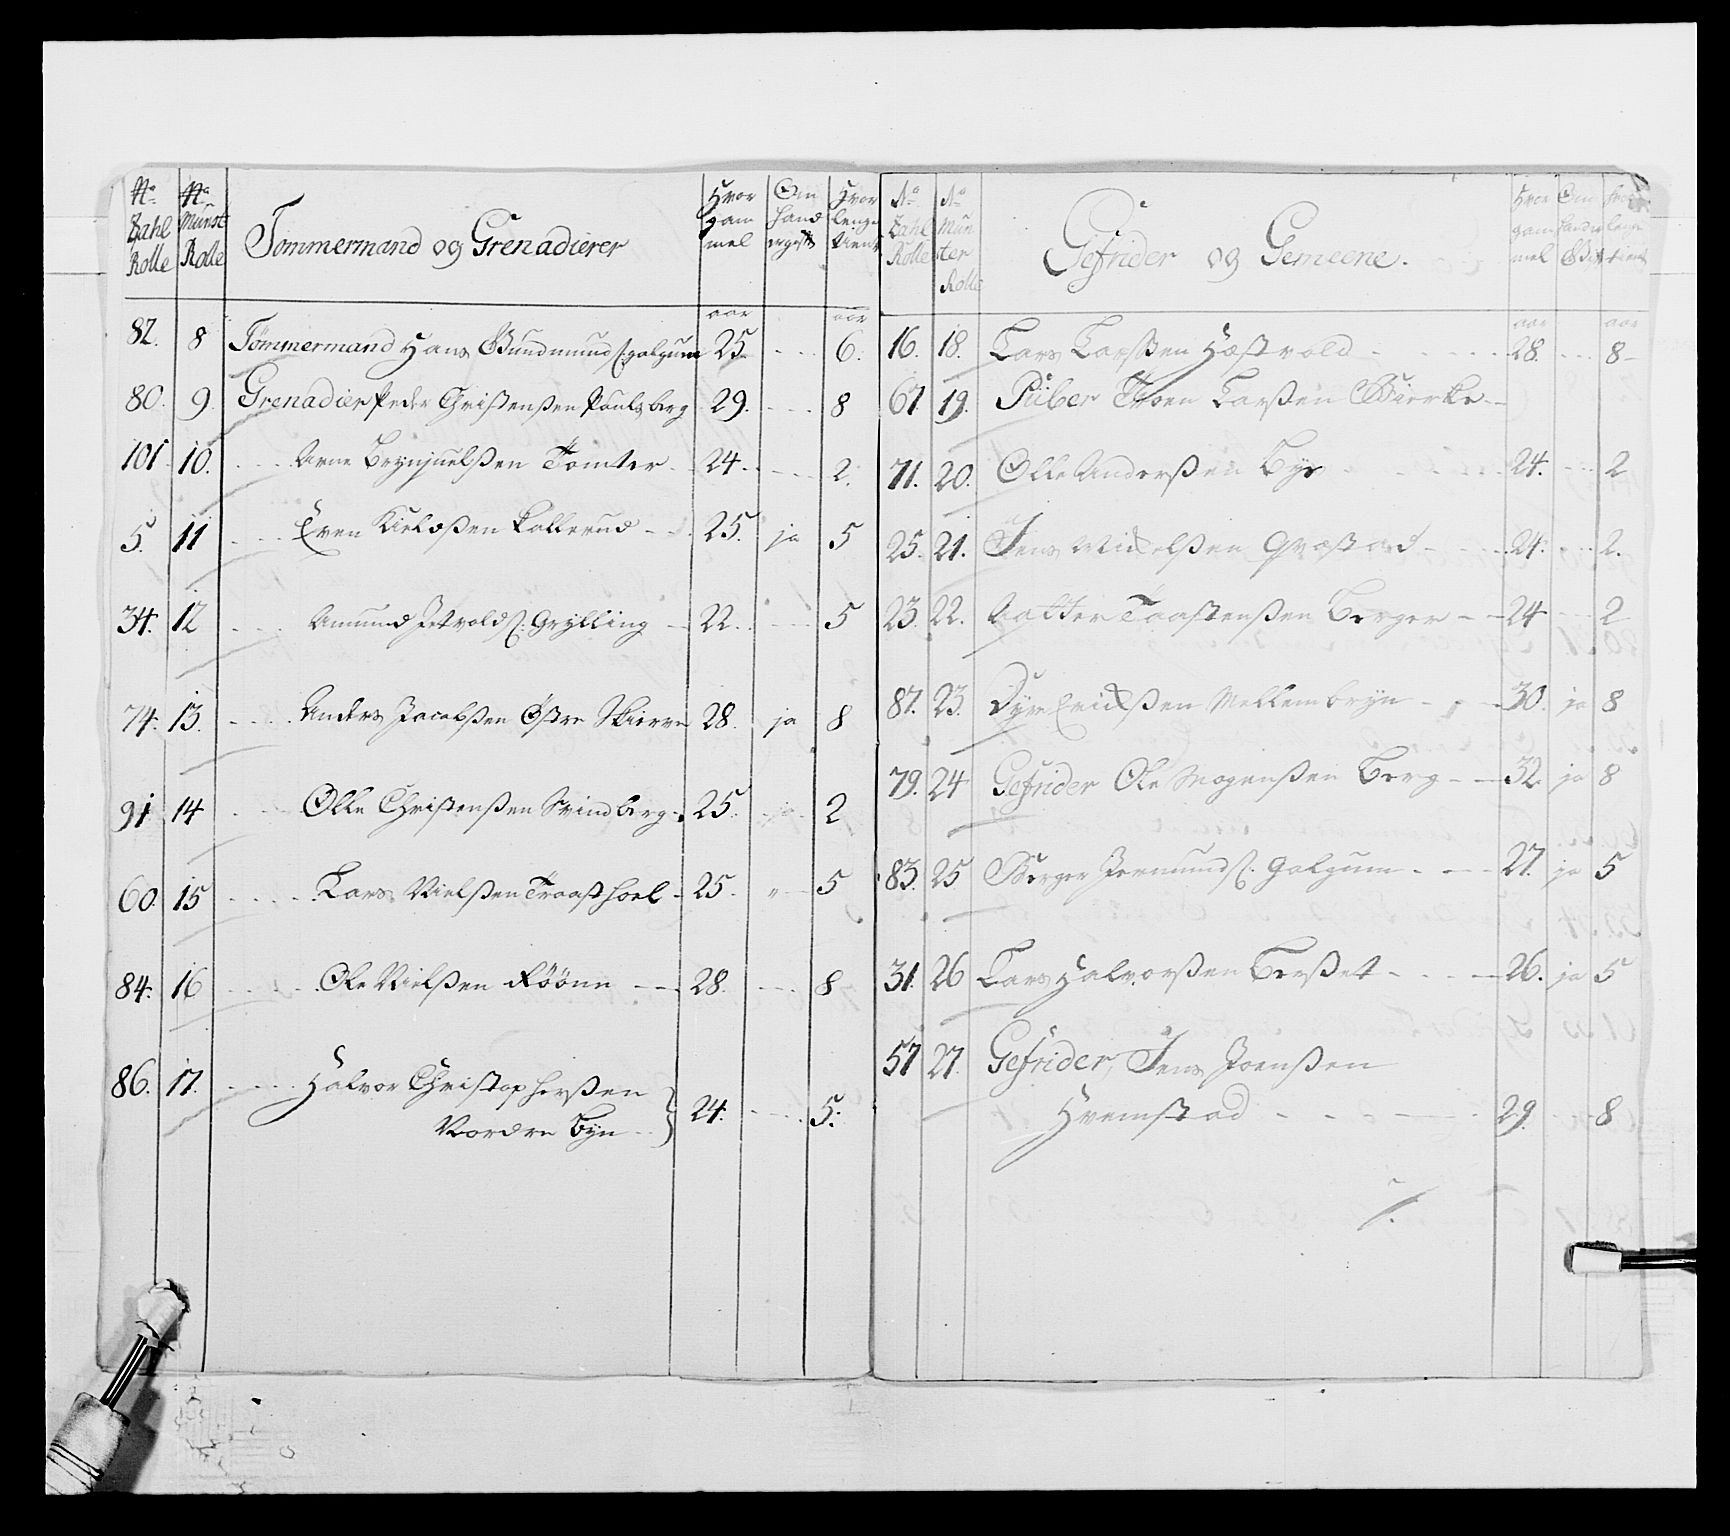 No Zahl Rolle | No Munst Rolle | Tommermand og Grenadierer | Hvor gam mel | Om hand er gift | Hvor lenge tient
aar | aar
82. 8 Tömmermand Hans Gudmunds: galgum 25. - - - 6.
80. 9. Grenadier Peder Christenßen Paulsberg 29. - - - 8
101 10. - - - Arne Brynjuelßen Tomter - 24. - - - 2.
5. 11 - - - Even Kieldßen Kollerud - - 25. ja 5
34. 12 - - - Amund - 22. - - - 5
74. 13. - - - Anders Jacobßen Østre Skierve 28. ja 8
91 14 - - - Olle Christenßen Svindberg - 25. 2
60. 15 - - - Lars Nielßen Traasthoel - 25. " - 5
84. 16 - - - Ole Nielßen Röönn - - 28. - - 8
86. 17. - - - Halvor Christopherßen
Nordre Byn - - } 24. - - - 5.
No Zahl Rolle | No Mun ster Rolle | Gefrider og Gemeene. | Hvor gam mel | Om hand er Gift | Hvor lenge tient
aar | aar
16. 18. Lars Larßen Hæstvold - - - 28. - - - 8 -
67. 19. Piiber Thoen Larßen Bierke -
71. 20. Olle Anderßen Bye - - - 24. - - - 2
25. 21. Jens Mickelßen Qvæstad - - - 24. - - - 2.
23. 22. Taastenßen Berger - - 24 - - 2
87. 23. Dyre Erichßen Mellembryn - - - 30. ja 8
79. 24 Gefrider Ole Mogenßen Berg - - 32. ja 8
83. 25 Berger Jermunds: Galgum - - - 27. ja 5
31. 26 Lars Halvorßen Berßet - - - 26. ja 5
57 27. Gefrider, Jens Joenßen
Hvemstad - - - 29. - - 8